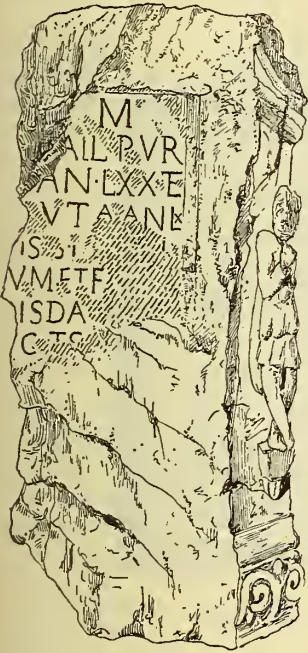 M
AILPVR
AN·LXX·E
VTAANL
IS
VMETF
ISDA